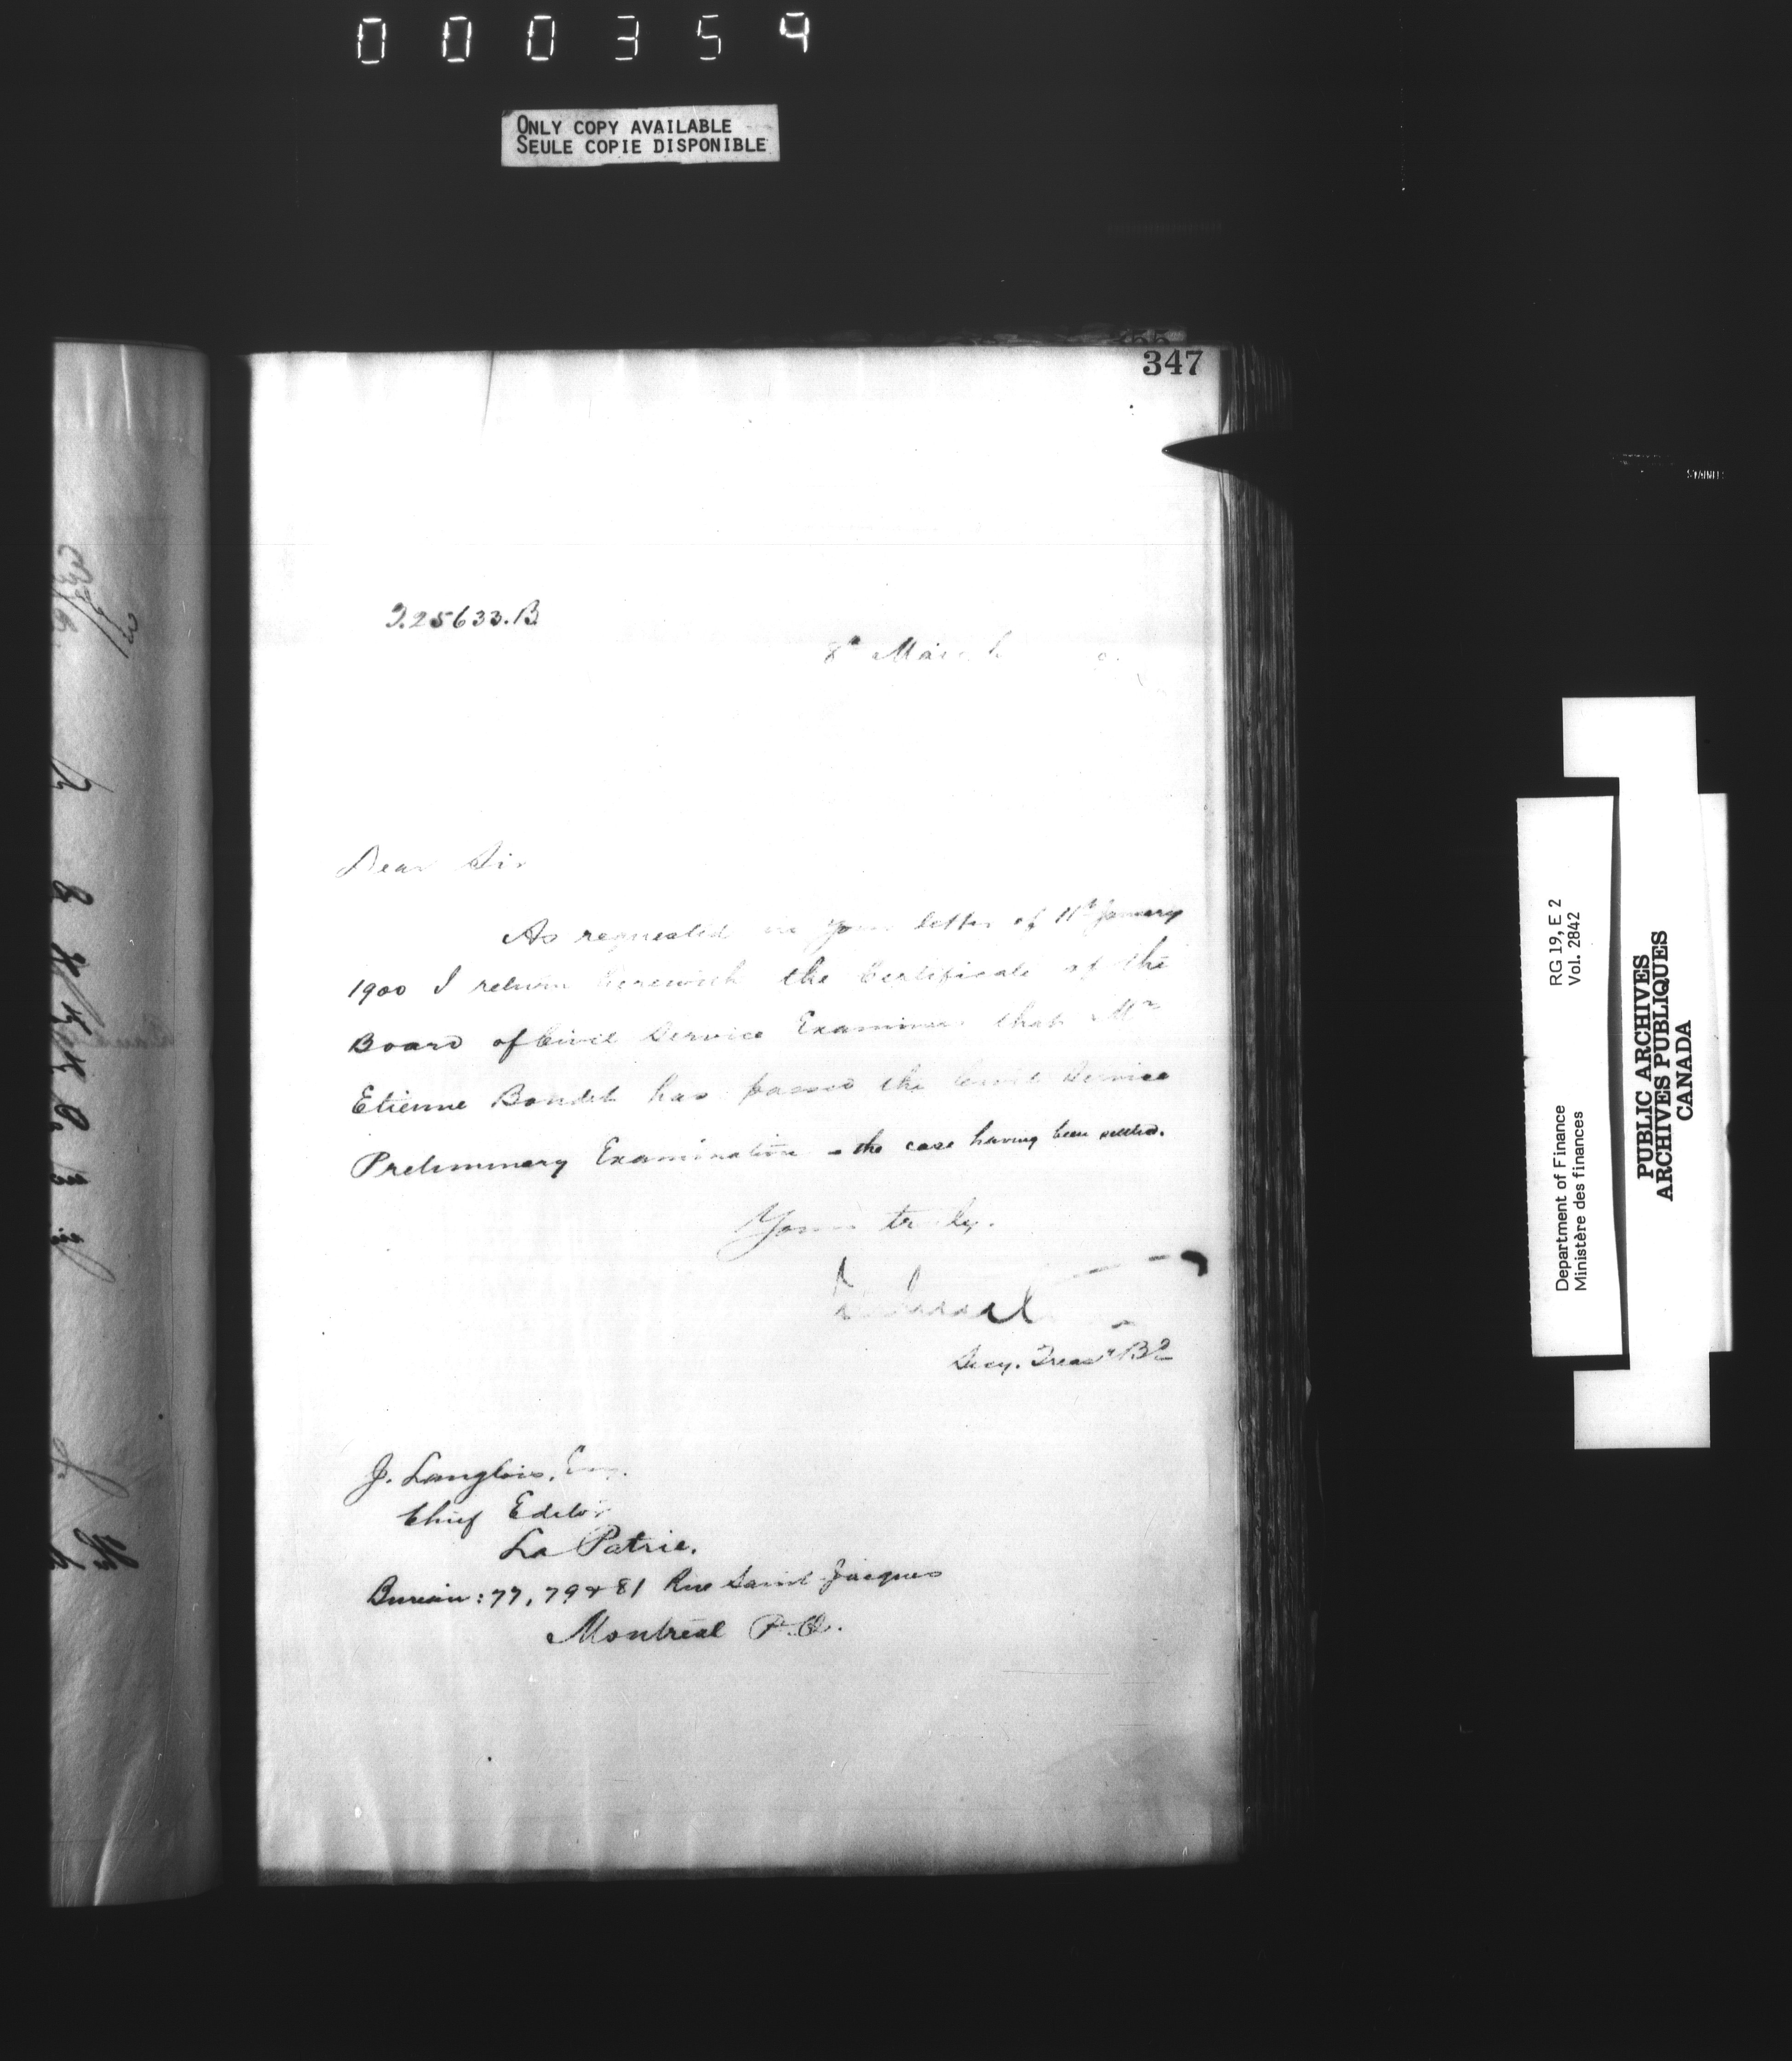 000354
ONLY COPY AVAILABLE
SEULE COPIE DISPONIBLE
347
T.25633.B
8th March
Dear Sir
As requested in your letter of 11th January
1900 I return herewith the Certificate of the
Board of Civil Service Examiners that Mr
Etienne Boudet has passed the Civil Service
Preliminary Examination - the case having been settled.
Yours truly.
Secy. Treasy Bd
J. Langlois, Esq.
Chief Editor
La Patrie.
Bureau: 77, 79 & 81 Rue Saint Jacques
Montreal P.Q.
RG 19, E 2
Vol. 2842
Department of Finance
Ministère des finances
PUBLIC ARCHIVES
ARCHIVES PUBLIQUES
CANADA